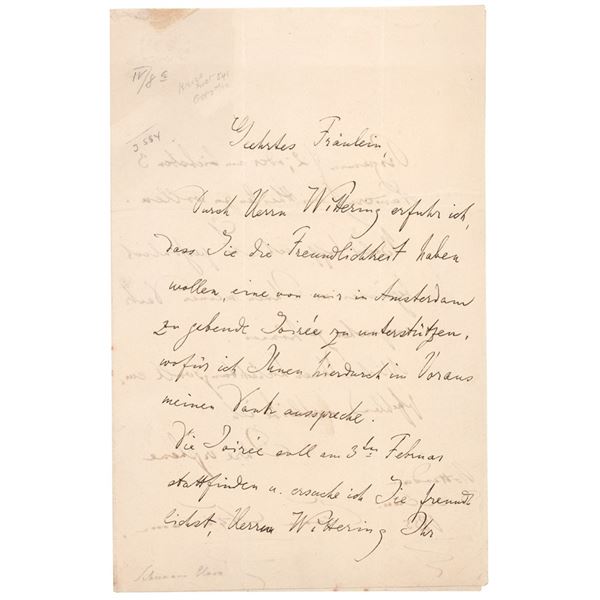 IV/8 c
J 584
Geehrtes Fräulein,
Durch Herrn Wittering erfuhr ich,
dass Sie die Freundlichkeit haben
wollen eine von mir in Amsterdam
zu gebende Soirée zu unterstützen,
wofür ich Ihnen hierdurch im Voraus
meinen Dank ausspreche.
Die Soirée soll am 3ten Februar
stattfinden u. ersuche ich Sie freund
lichst, Herrn Wittering Ihr
Schumann Clara